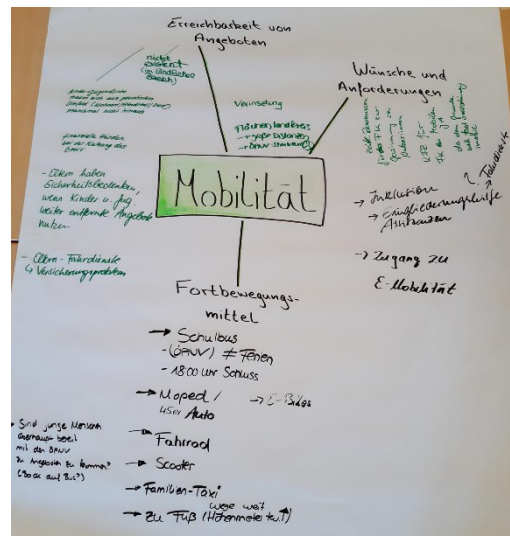 Erreichbarkeit von
Angeboten
nicht
existent
(im ländlichen
Bereich)
finanzielle Hürden
bei der Nutzung der
ÖPNV
- Eltern haben
Sicherheitsbedenken,
wenn Kinder u. Jug.
weiter entfernte Angebote
nutzen
- Eltern-Fahrdienste
↳ Versicherungsproblem
Verinselung
Flächenlandkreis
→ große Distanzen
→ ÖPNV-Struktur
Wünsche und
Anforderungen
KFZ für
→ Fahrdienste
→ Inklusion
→ Eingliederungshilfe
Assistenzen
→ Zugang zu
E-Mobilität
Mobilität
Fortbewegungs-
mittel
→ Schulbus
- (ÖPNV) ≠ Ferien
- 18:00 Uhr Schluss
→ Moped /
45er Auto
→ E-Bikes
→ Fahrrad
→ Scooter
→ Familien-Taxi
→ Zu Fuß (Höhenmeter
wege weit
→ Sind junge Menschen
überhaupt bereit
mit den ÖPNV
zu Angeboten zu kommen?
(Bock auf Bus?)